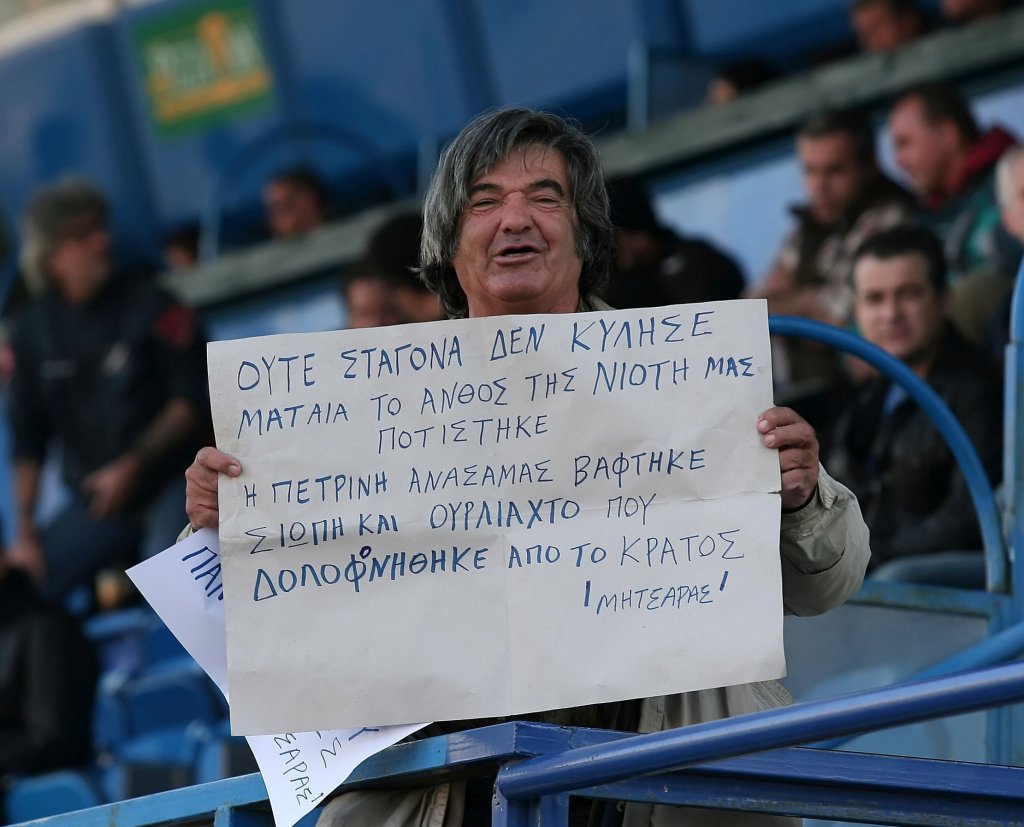 ΟΥΤΕ ΣΤΑΓΟΝΑ ΔΕΝ ΚΥΛΗΣΕ
ΜΑΤΑΙΑ ΤΟ ΑΝΘΟΣ ΤΗΣ ΝΙΟΤΗ ΜΑΣ
ΠΟΤΙΣΤΗΚΕ
Η ΠΕΤΡΙΝΗ ΑΝΑΣΑΜΑΣ ΒΑΦΤΗΚΕ
ΣΙΩΠΗ ΚΑΙ ΟΥΡΛΙΑΧΤΟ ΠΟΥ
ΔΟΛΟΦΟΝΗΘΗΚΕ ΑΠΟ ΤΟ ΚΡΑΤΟΣ
!ΜΗΤΣΑΡΑΣ!
ΠΑΝ
ΣΑΡΑΣ!